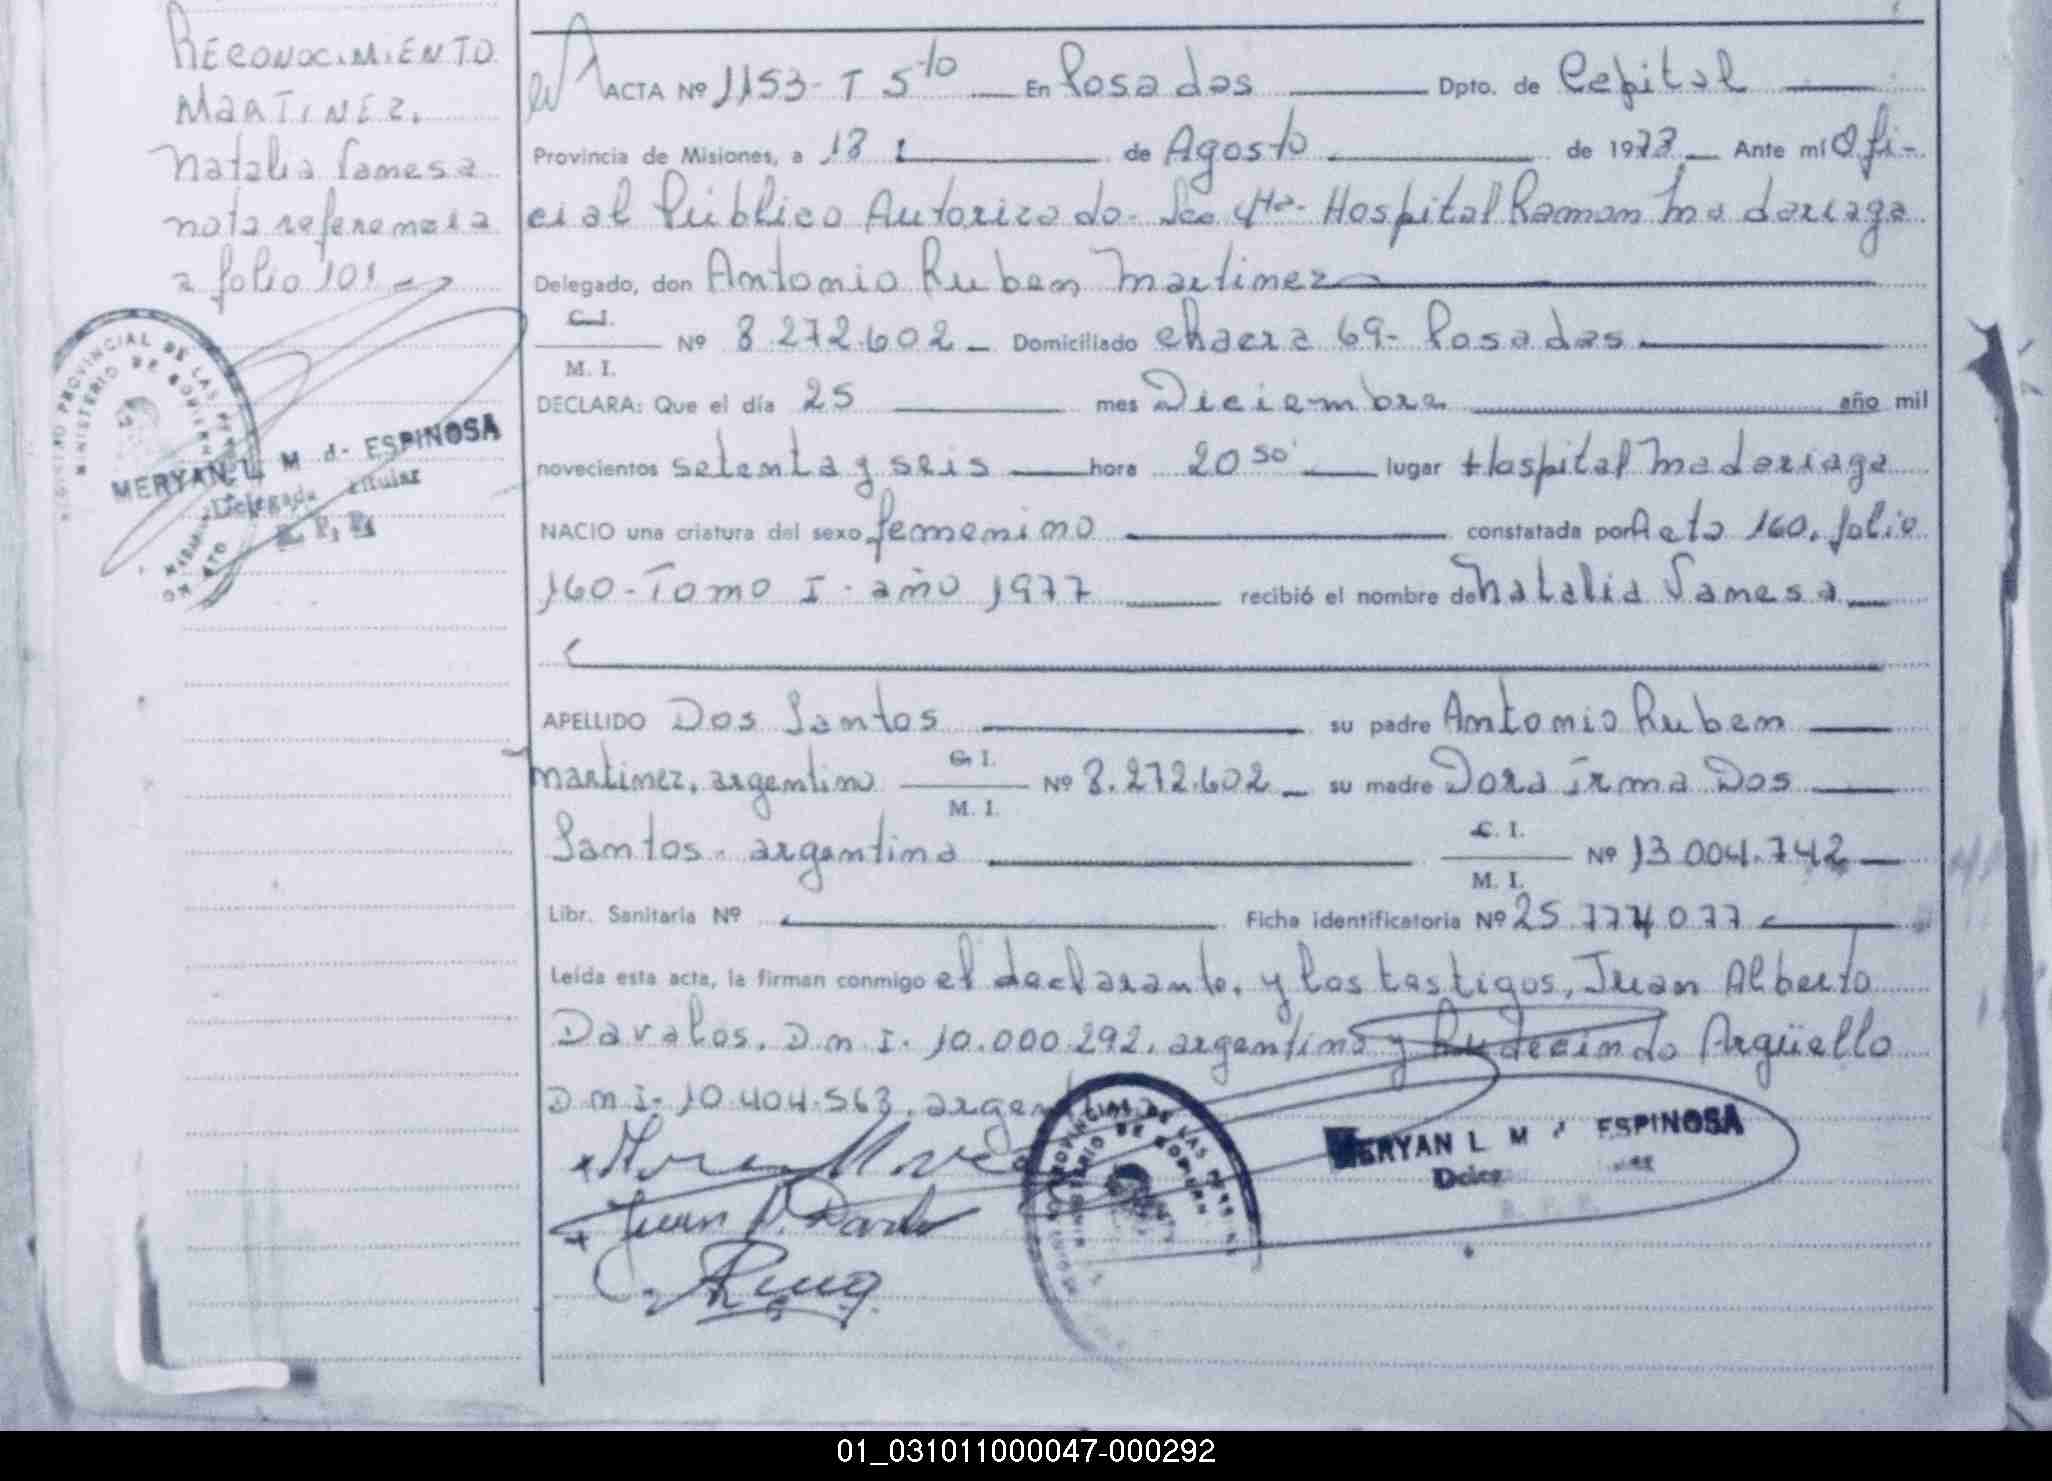 RECONOCIMIENTO
MARTINEZ,
Natalia Vanesa
nota referencia
a folio 101
REGISTRO PROVINCIAL DE LAS PER
MINISTERIO DE GOBIERN
MERYAN L. M d- ESPINOSA
Delegada titular
R. P. P.
ACTA Nº 1153- T 5to En Posadas Dpto. de Capital
Provincia de Misiones, a 18 de Agosto de 1978 Ante mí Ofi-
cial Público Autorizado- Sec 4ta- Hospital Ramon Madariaga
Delegado, don Antonio Ruben Martinez
C. I.
M. I.
Nº 8.272.602 Domiciliado chacra 69- Posadas
DECLARA: Que el día 25 mes Diciembre año mil
novecientos setenta y seis hora 20 50' lugar Hospital Madariaga
NACIO una criatura del sexo femenino constatada por Acta 160, folio
160-Tomo I- año 1977 recibió el nombre de Natalia Vanesa
APELLIDO Dos Santos su padre Antonio Ruben
Martinez, argentino C. I. M. I. Nº 8.272.602 su madre Dora Irma Dos
Santos- argentina C. I. M. I. Nº 13 004.742
Libr. Sanitaria Nº Ficha identificatoria Nº 25.774 077
Leída esta acta, la firman conmigo el declarante, y los testigos, Juan Alberto
Davalos, D n I- 10.000 292, argentino y Rudecindo Argüello
D n I- 10 404-563, argentino
Juan A. Davalo
PROVINCIAL DE LAS PERS
MINISTERIO DE GOBIERN
MERYAN L M d ESPINOSA
R. P. P.
01_031011000047-000292